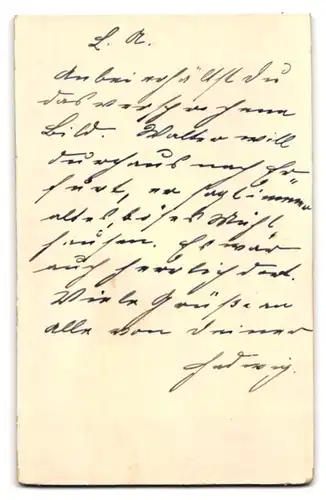 L. A.
Anbei erhältst Du
das versprochene
Bild. Walter will
durchaus nach Er-
furt, er sagt immer
altes böses Mühl
hausen. Es war
auch herrlich dort.
Viele Grüße an
alle von Deiner
Hedwig.